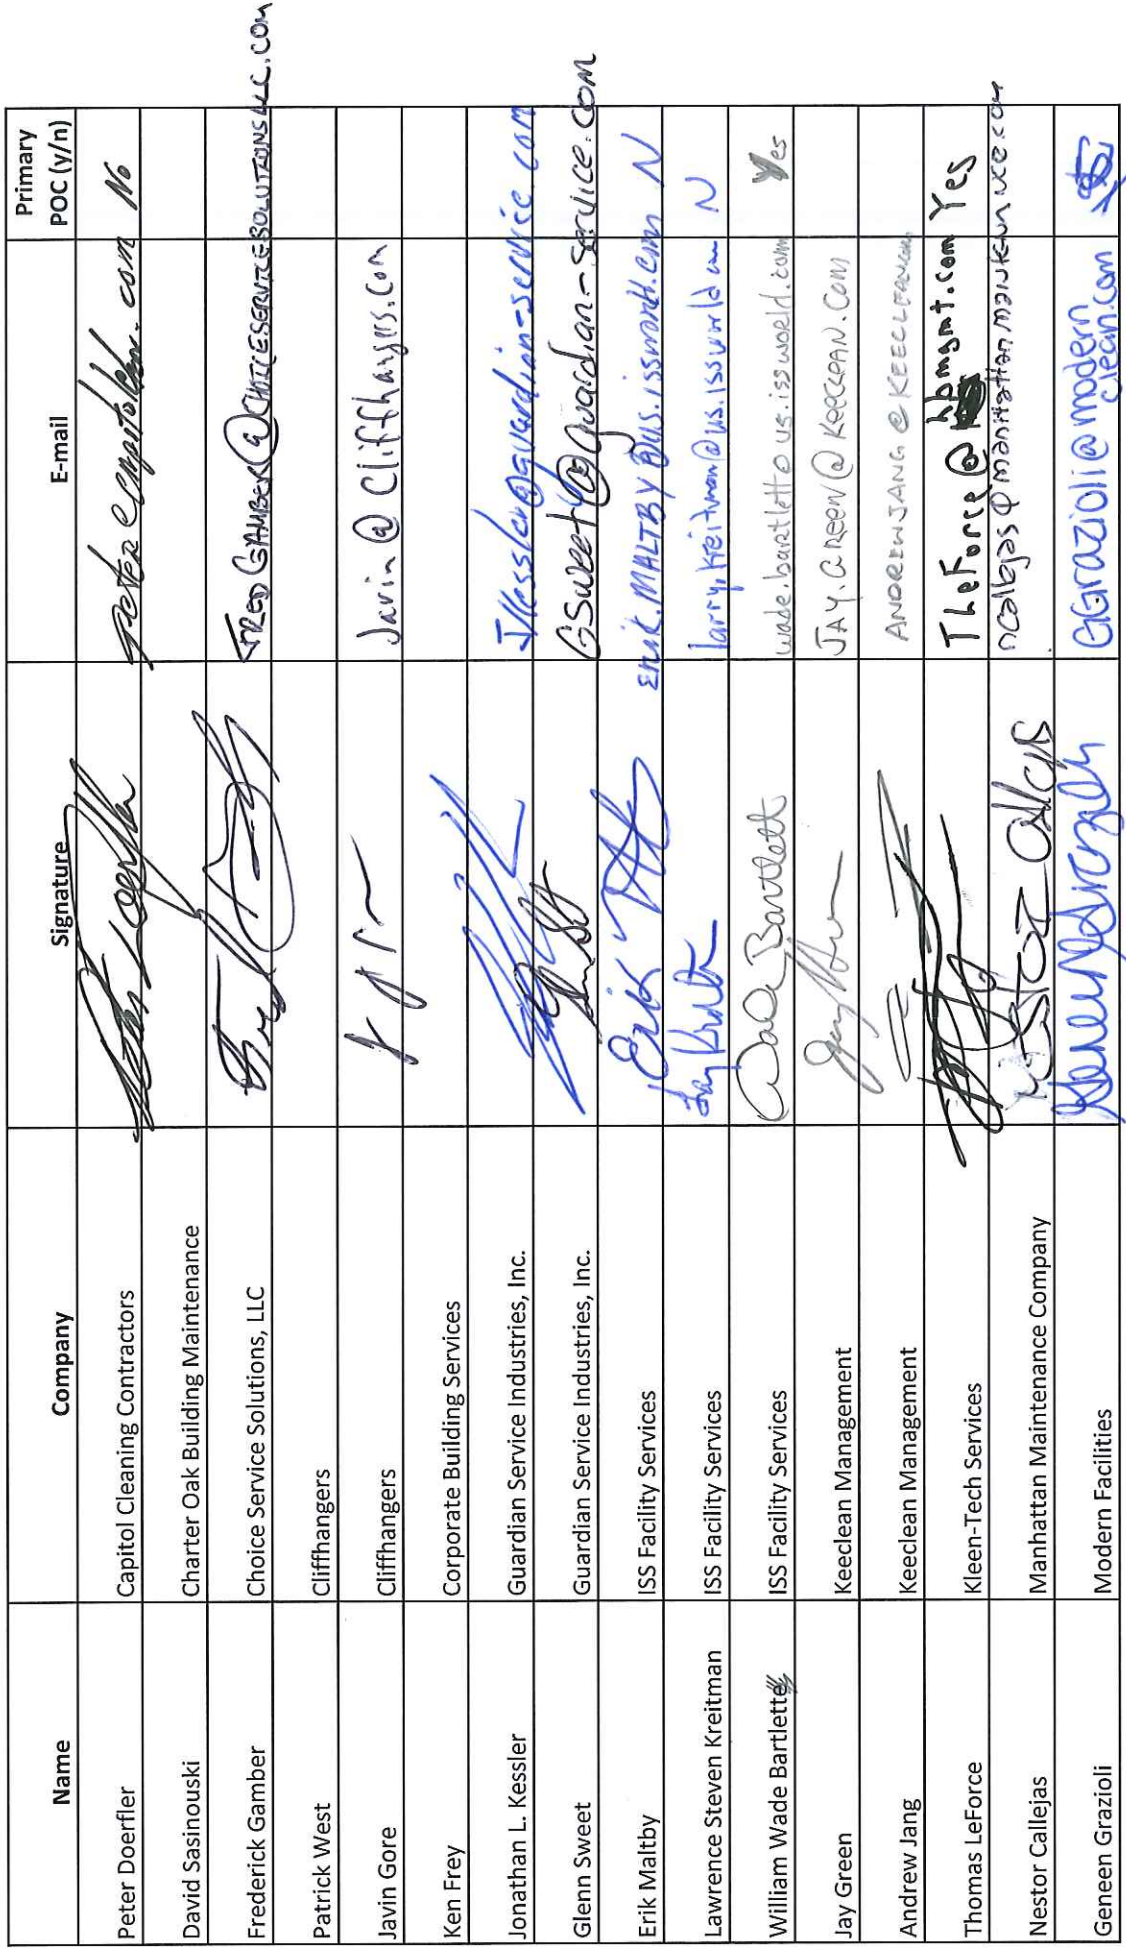 Name Company Signature E-mail Primary POC (y/n)
Peter Doerfler Capitol Cleaning Contractors No
David Sasinouski Charter Oak Building Maintenance
Frederick Gamber Choice Service Solutions, LLC FREDGAMBER@CHOICESERVICESOLUTIONSLLC.COM
Patrick West Cliffhangers
Javin Gore Cliffhangers Javin@Cliffhangers.com
Ken Frey Corporate Building Services
Jonathan L. Kessler Guardian Service Industries, Inc. JKessler@guardian-service.com
Glenn Sweet Guardian Service Industries, Inc. GSweet@guardian-service.com
Erik Maltby ISS Facility Services Erik N
Lawrence Steven Kreitman ISS Facility Services larry.kreitman@us.issworld.com N
William Wade Bartlette ISS Facility Services Wade Bartlett wade.bartlett@us.issworld.com Yes
Jay Green Keeclean Management JAY.GREEN@KEECLEAN.COM
Andrew Jang Keeclean Management
Thomas LeForce Kleen-Tech Services TLeForce@kbmgmt.com Yes
Nestor Callejas Manhattan Maintenance Company ncallejas@manhattanmaintenance.com
Geneen Grazioli Modern Facilities GGrazioli@modern
clean.com